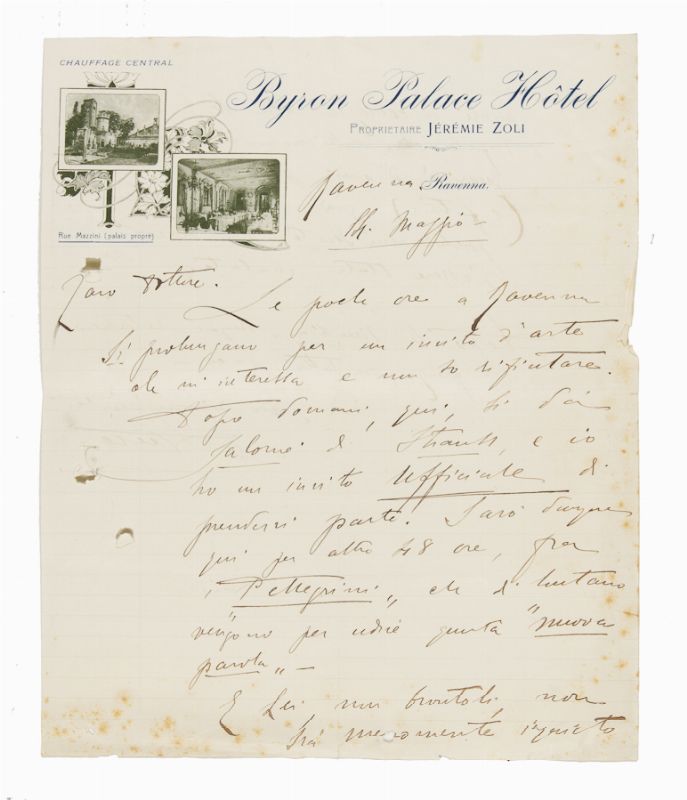 CHAUFFAGE CENTRAL
Byron Palace Hôtel
PROPRIETAIRE JÉRÉMIE ZOLI
Ravenna Ravenna.
Maggio
Rue Mazzini (palais propre)
Caro Ettore. Le poche ore a Ravenna
si prolungano per un invito d'arte
che mi interessa e non so rifiutare.
Dopo domani, qui, si dà
Salomè di Strauss, e io
ho un invito ufficiale di
prendervi parte. Sarò dunque
qui per altre 48 ore, fra
"Pellegrini" che di lontano
vengono per udire questa "nuova
parola" –
E Lei non brontoli, non
sia menomamente inquieto